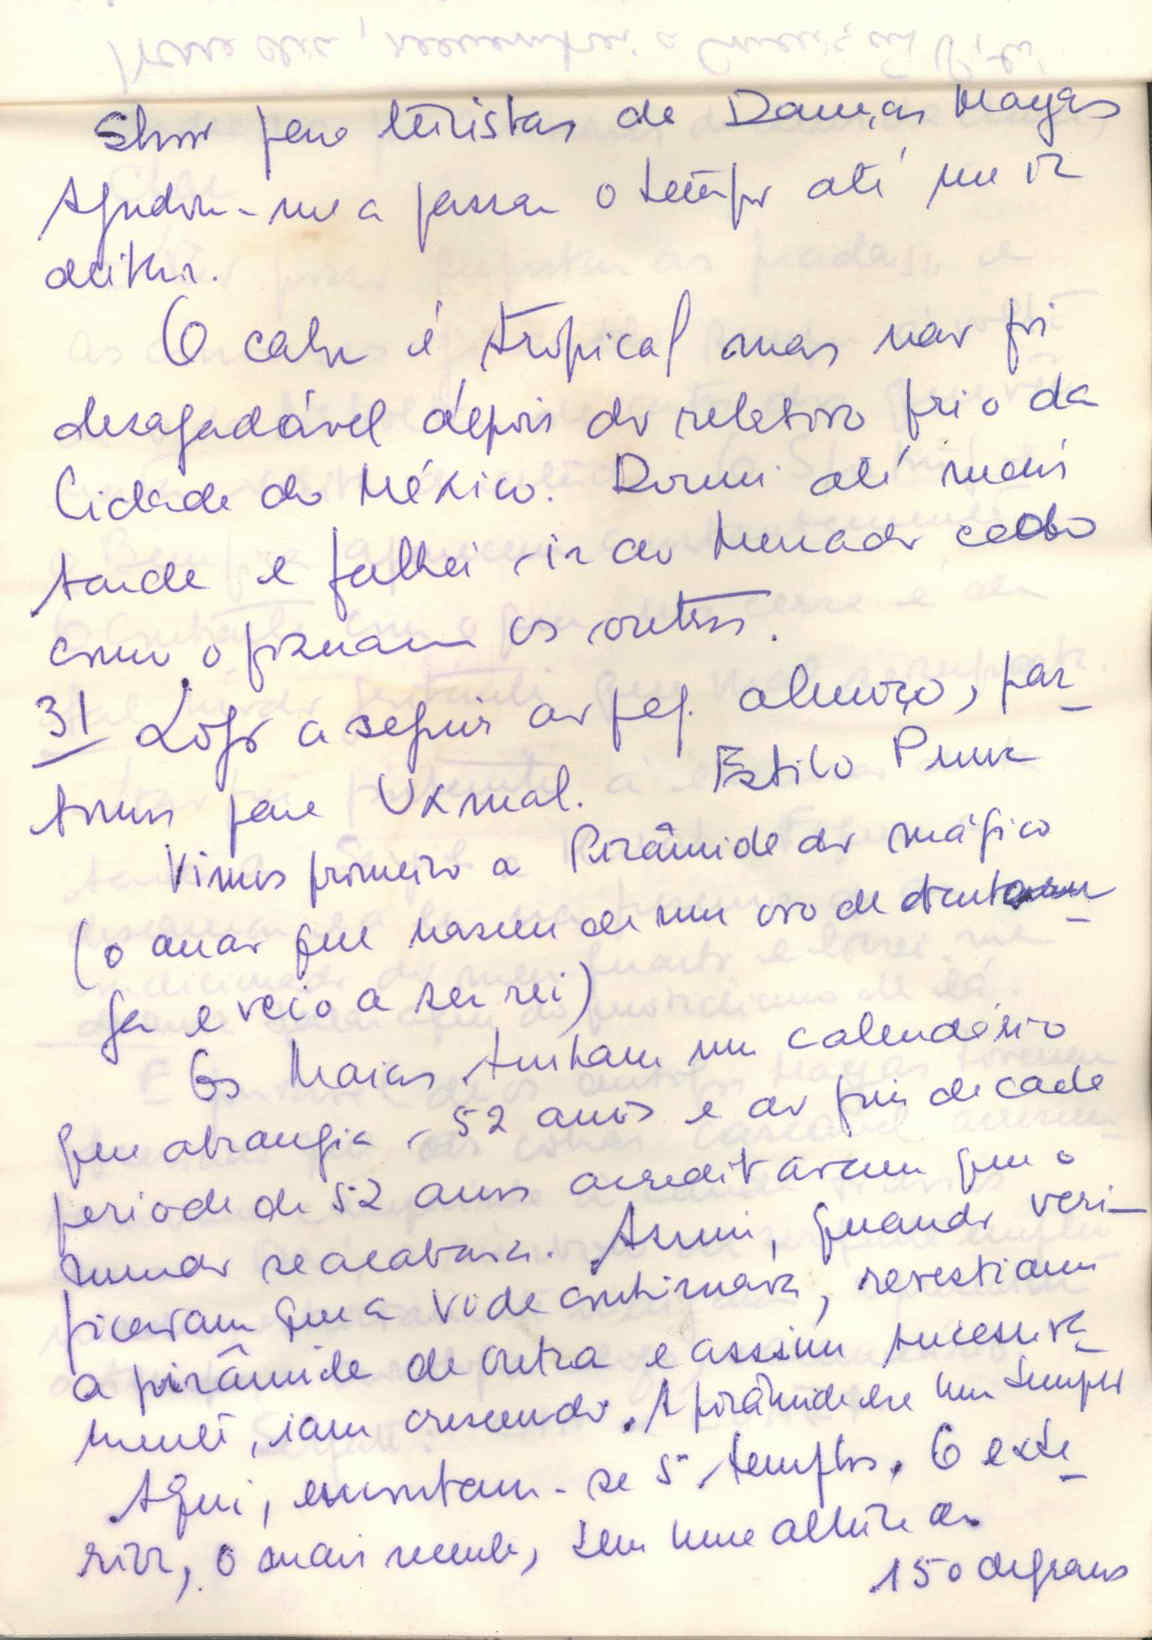 Show para turistas de Danças Mayas
Ajudou-me a passar o tempo até me ir
deitar.
O calor é tropical mas não foi
desagradável depois do relativo frio da
Cidade do México. Dormi até mais
tarde e falhei ir ao Mercado cedo
como o fizeram os outros.
31 Logo a seguir ao peq. almoço, par-
timos para Uxmal. Estilo Puuc
Vimos primeiro a Pirâmide do mágico
(o anão que nasceu de um ovo de tartaru-
ga e veio a ser rei)
Os Maias tinham um calendário
que abrangia 52 anos e ao fim de cada
periodo de 52 anos acreditavam que o
mundo se acabava. Assim, quando veri-
ficavam que a vida continuava, revestiam
a pirâmide de outra e assim sucessiva-
mente, iam crescendo. A pirâmide era um templo
Aqui, encontram-se 5 templos. O exte-
rior, o mais recente, tem uma altura de
150 degraus